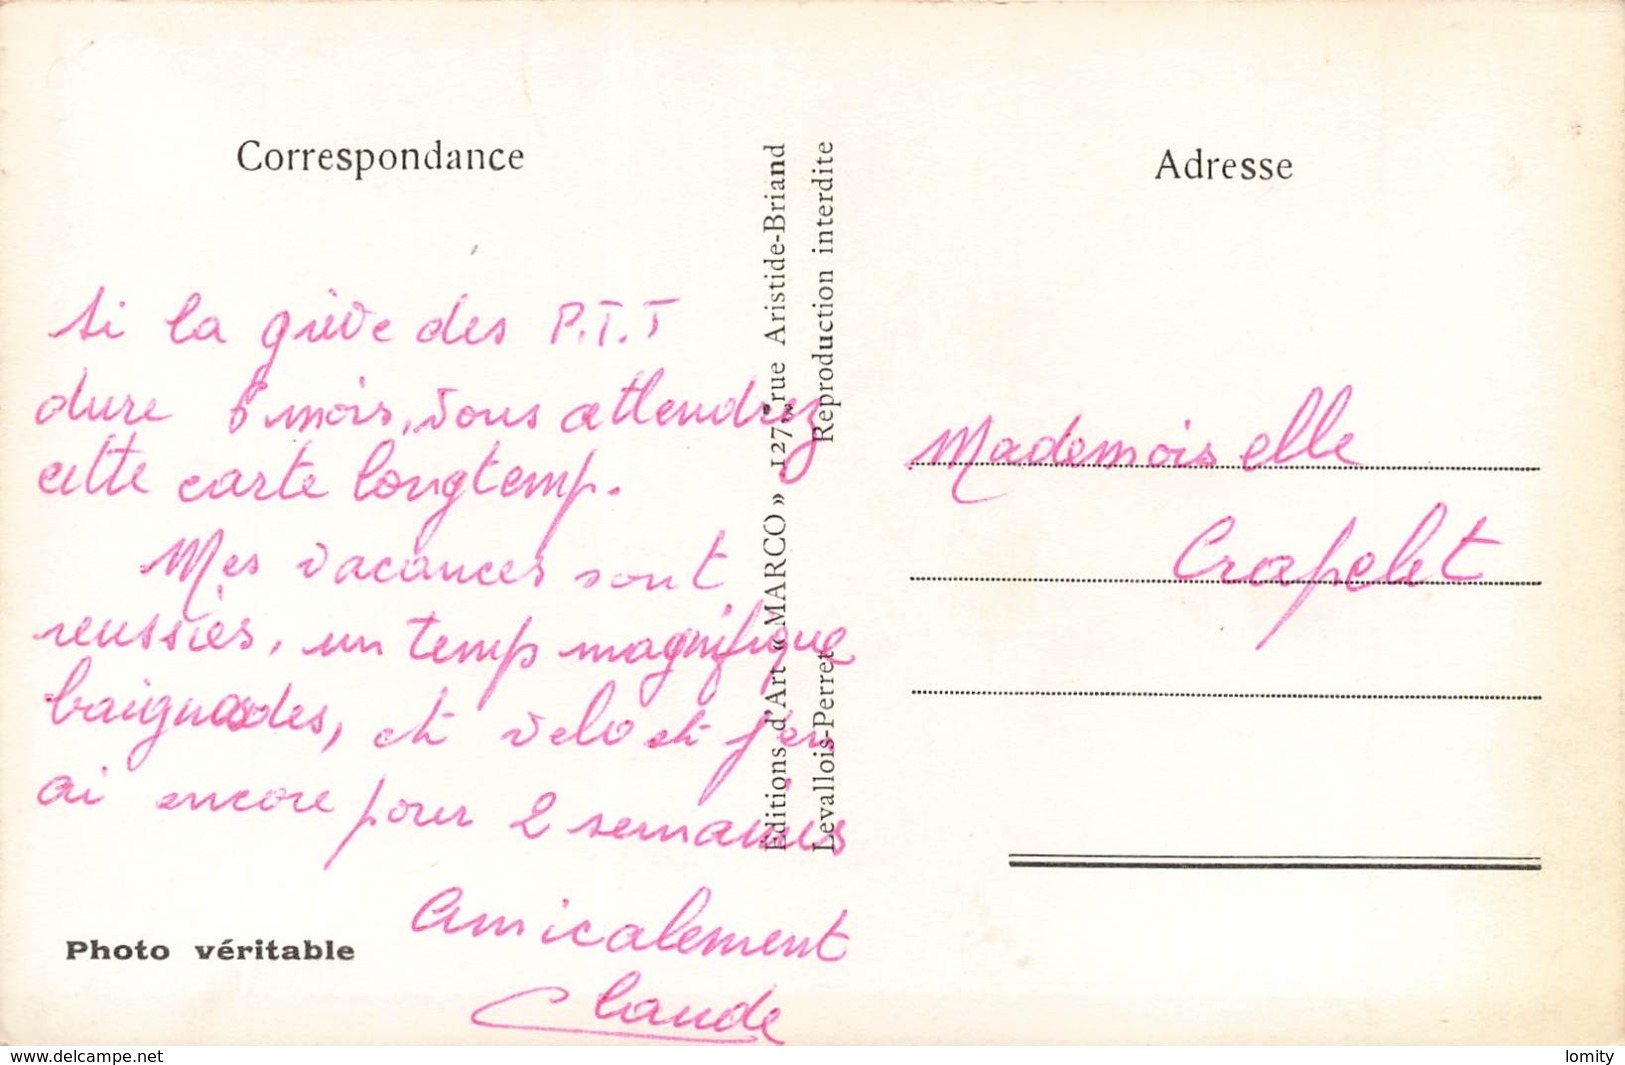 Correspondance
Si la grève des P.T.T
dure 6 mois, vous attendrez
cette carte longtemp.
Mes vacances sont
reussies, un temp magnifique
baignades, et velo et j'en
ai encore pour 2 semaines
Amicalement
Claude
Photo véritable
Editions d'Art « MARCO » 127, rue Aristide-Briand
Levallois-Perret Reproduction interdite
Adresse
Mademoiselle
Crapelet
www.delcampe.net
lomity